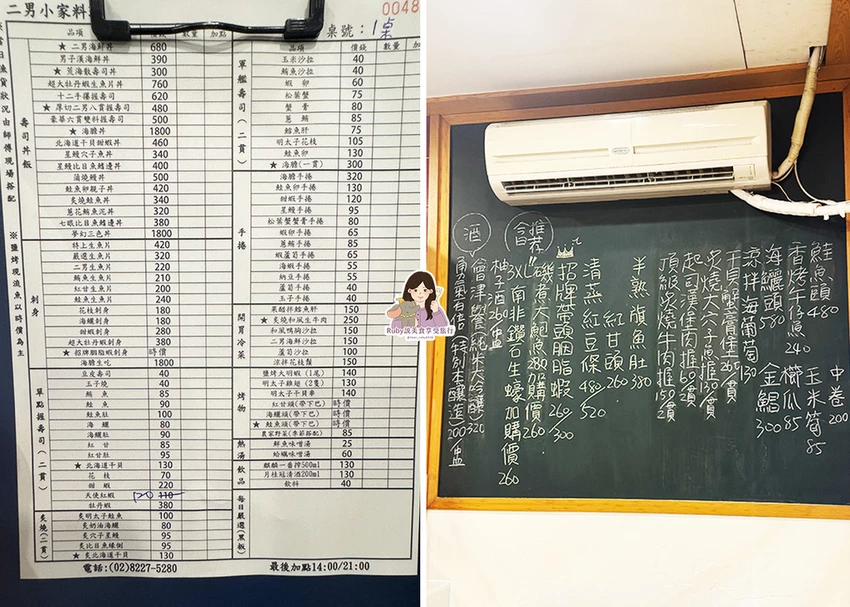 二男小家料
0048
桌號：1桌
品項 價錢 數量 加點
壽司丼飯
★ 二男海鮮丼 680
男子漢海鮮丼 390
★ 荒海散壽司丼 300
超大牡丹蝦生魚片丼 760
十二手彈握壽司 620
★ 厚切二男八貫握壽司 480
豪華六貫雙料握壽司 500
★ 海膽丼 1800
北海道干貝甜蝦丼 460
星鰻穴子魚丼 340
星鰻比目魚鰭邊丼 400
蒲燒鰻丼 500
鮭魚卵親子丼 420
炙燒鮭魚丼 340
蔥花鮪魚泥丼 320
七眼比目魚鰭邊丼 380
夢幻三色丼 1800
刺身
特上生魚片 420
嚴選生魚片 320
二男生魚片 220
鮪魚生魚片 210
紅甘生魚片 200
鮭魚生魚片 240
花枝刺身 180
海鱺刺身 180
甜蝦刺身 280
超大牡丹蝦刺身 380
★ 招牌胭脂蝦刺身 時價
海膽生吃 1800
單點握壽司(二貫)
豆皮壽司 40
玉子燒 40
鮪魚 85
鮭魚 90
鮭魚肚 100
海鱺 80
海鱺肚 90
紅甘 85
紅甘肚 95
★ 北海道干貝 130
花枝 70
甜蝦 220
天使紅蝦 110
牡丹蝦 380
炙燒(二貫)
炙明太子鮭魚 100
炙奶油海鱺 80
炙穴子星鰻 95
炙比目魚緣側 95
★ 炙北海道干貝 130
電話:(02)8227-5280
品項 價錢 數量
軍艦壽司(二貫)
玉米沙拉 40
鮪魚沙拉 40
蝦卵 60
松葉蟹 75
蟹膏 80
蔥鮪 85
鱈魚肝 75
明太子花枝 105
鮭魚卵 130
★ 海膽(一貫) 300
手捲
海膽手捲 380
鮭魚卵手捲 130
甜蝦手捲 120
星鰻手捲 95
松葉蟹蟹膏手捲 80
蝦卵手捲 65
蔥鮪手捲 85
蝦蘆筍手捲 65
海蝦手捲 55
納豆手捲 55
蘆筍手捲 40
玉子手捲 40
開胃冷菜
果醋拌鱈魚肝 150
★ 炙燒和風生牛肉 250
和風鴨胸沙拉 150
二男海鮮沙拉 150
蘆筍沙拉 100
涼拌花枝鬚 150
烤物
鹽烤大明蝦(1尾) 140
明太子雞翅(2隻) 130
明太子干貝串 140
紅甘頭(帶下巴) 時價
海鱺頭(帶下巴) 時價
★ 鮭魚頭(帶下巴) 時價
農家野菜(季節搭配) 85
熱湯
鮮魚味噌湯 25
蛤蠣味噌湯 60
飲品
麒麟一番搾500ml 130
月桂冠清酒200ml 130
飲料 40
每日嚴選(黑板)
最後加點14:00/21:00
※鹽烤現流魚以時價為主
Ruby說美食享受旅行
鮭魚頭480
香烤午仔魚240
海鱺頭580
涼拌海葡萄130
中卷200
玉米筍85
櫛瓜85
金鯧300
炙燒大干貝130貫
起司漢堡肉推60貫
頂級炙燒牛肉推150貫
半熟旗魚肚380
紅甘頭260
清蒸紅豆條480 520
招牌帶頭胭脂蝦260/300
磯煮大鮑魚280加購價260
3XL南非鑽石生蠔加購價260
推荐
酒
柚子酒260